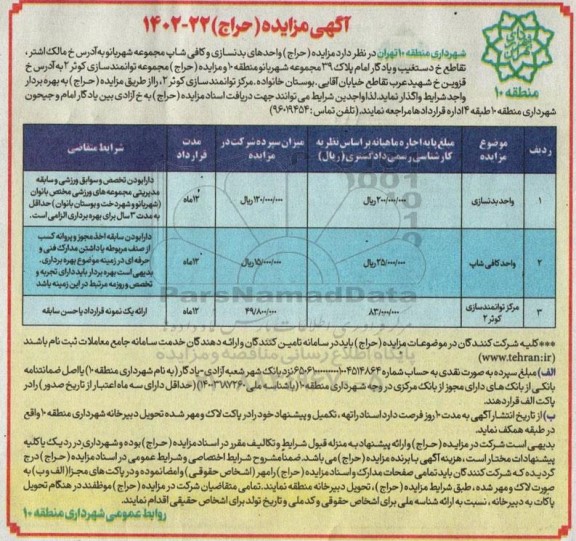 آگهی مزایده (حراج) ۲۲-۱۴۰۲
منطقه ۱۰
شهرداری منطقه ۱۰ تهران در نظر دارد مزایده (حراج) واحدهای بدنسازی و کافی شاپ مجموعه شهربانو به آدرس خ مالک اشتر،
تقاطع خ دستغیب و یادگار امام پلاک ۳۹ مجموعه شهربانو منطقه ۱۰ و مزایده (حراج) مجموعه توانمندسازی کوثر ۲ به آدرس خ
قزوین خ شهید عرب تقاطع خیابان آقایی، بوستان خانواده، مرکز توانمندسازی کوثر ۲، را از طریق مزایده (حراج) به بهره بردار
واجد شرایط واگذار نماید. لذا واجدین شرایط می توانند جهت دریافت اسناد مزایده (حراج) به خ آزادی بین یادگار امام و جیحون
شهرداری منطقه ۱۰ طبقه ۴ اداره قراردادها مراجعه نمایند. (تلفن تماس: ۹۶۰۱۹۴۵۴)
ردیف | موضوع مزایده | مبلغ پایه اجاره ماهیانه بر اساس نظریه کارشناسی رسمی دادگستری (ریال) | میزان سپرده شرکت در مزایده | مدت قرارداد | شرایط متقاضی
۱ | واحد بدنسازی | ۲۰۰/۰۰۰/۰۰۰ ریال | ۱۲۰/۰۰۰/۰۰۰ ریال | ۱۲ ماه | دارا بودن تخصص و سوابق ورزشی و سابقه مدیریتی مجموعه های ورزشی مختص بانوان (شهربانو و شهردخت و بوستان بانوان) حداقل به مدت ۳ سال برای بهره برداری الزامی است.
۲ | واحد کافی شاپ | ۲۵/۰۰۰/۰۰۰ ریال | ۱۵/۰۰۰/۰۰۰ ریال | ۱۲ ماه | دارا بودن سابقه اخذ مجوز و پروانه کسب از صنف مربوطه یا داشتن مدارک فنی و حرفه ای در زمینه موضوع بهره برداری. بدیهی است بهره بردار باید دارای تجربه و تخصص و رزومه مرتبط در این زمینه باشد
۳ | مرکز توانمندسازی کوثر ۲ | ۸۳/۰۰۰/۰۰۰ | ۴۹/۸۰۰/۰۰۰ | ۱۲ ماه | ارائه یک نمونه قرارداد یا حسن سابقه
ParsNamadData
پایگاه اطلاع رسانی مناقصه و مزایده
***کلیه شرکت کنندگان در موضوعات مزایده (حراج) باید در سامانه تامین کنندگان و ارائه دهندگان خدمت سامانه جامع معاملات ثبت نام باشند
(www.tehran.ir)
الف) مبلغ سپرده به صورت نقدی به حساب شماره نزد بانک شهر شعبه آزادی-یادگار (به نام شهرداری منطقه ۱۰) یا اصل ضمانتنامه
بانکی از بانک های دارای مجوز از بانک مرکزی در وجه شهرداری منطقه ۱۰ (با شناسه ملی ۱۴۰۰۳۱۸۷۲۶۰) (حداقل دارای سه ماه اعتبار از تاریخ صدور) را در
پاکت الف قرار دهند.
ب) از تاریخ انتشار آگهی به مدت ۱۰ روز فرصت دارد اسناد را تهیه، تکمیل و پیشنهاد خود را در پاکت لاک و مهر شده تحویل دبیرخانه شهرداری منطقه ۱۰ واقع
در طبقه همکف نماید.
بدیهی است شرکت در مزایده (حراج) و ارائه پیشنهاد به منزله قبول شرایط و تکالیف مقرر در اسناد مزایده (حراج) بوده و شهرداری در رد یک یا کلیه
پیشنهادات مختار است، هزینه آگهی با برنده مزایده (حراج) می باشد. ضمنا مشروح شرایط اختصاصی و شرایط عمومی در اسناد مزایده (حراج) درج
گردیده که شرکت کنندگان باید تمامی صفحات مدارک و اسناد مزایده (حراج) را مهر (اشخاص حقوقی) و امضا نموده و در پاکت های مجزا (الف و ب) به
صورت لاک و مهر شده، طبق شرایط مزایده (حراج)، تحویل دبیرخانه منطقه نمایند. تمامی متقاضیان شرکت در مزایده (حراج) موظفند در هنگام تحویل
پاکات به دبیرخانه، نسبت به ارائه شناسه ملی برای اشخاص حقوقی و کد ملی و تاریخ تولد برای اشخاص حقیقی اقدام نمایند.
روابط عمومی شهرداری منطقه ۱۰